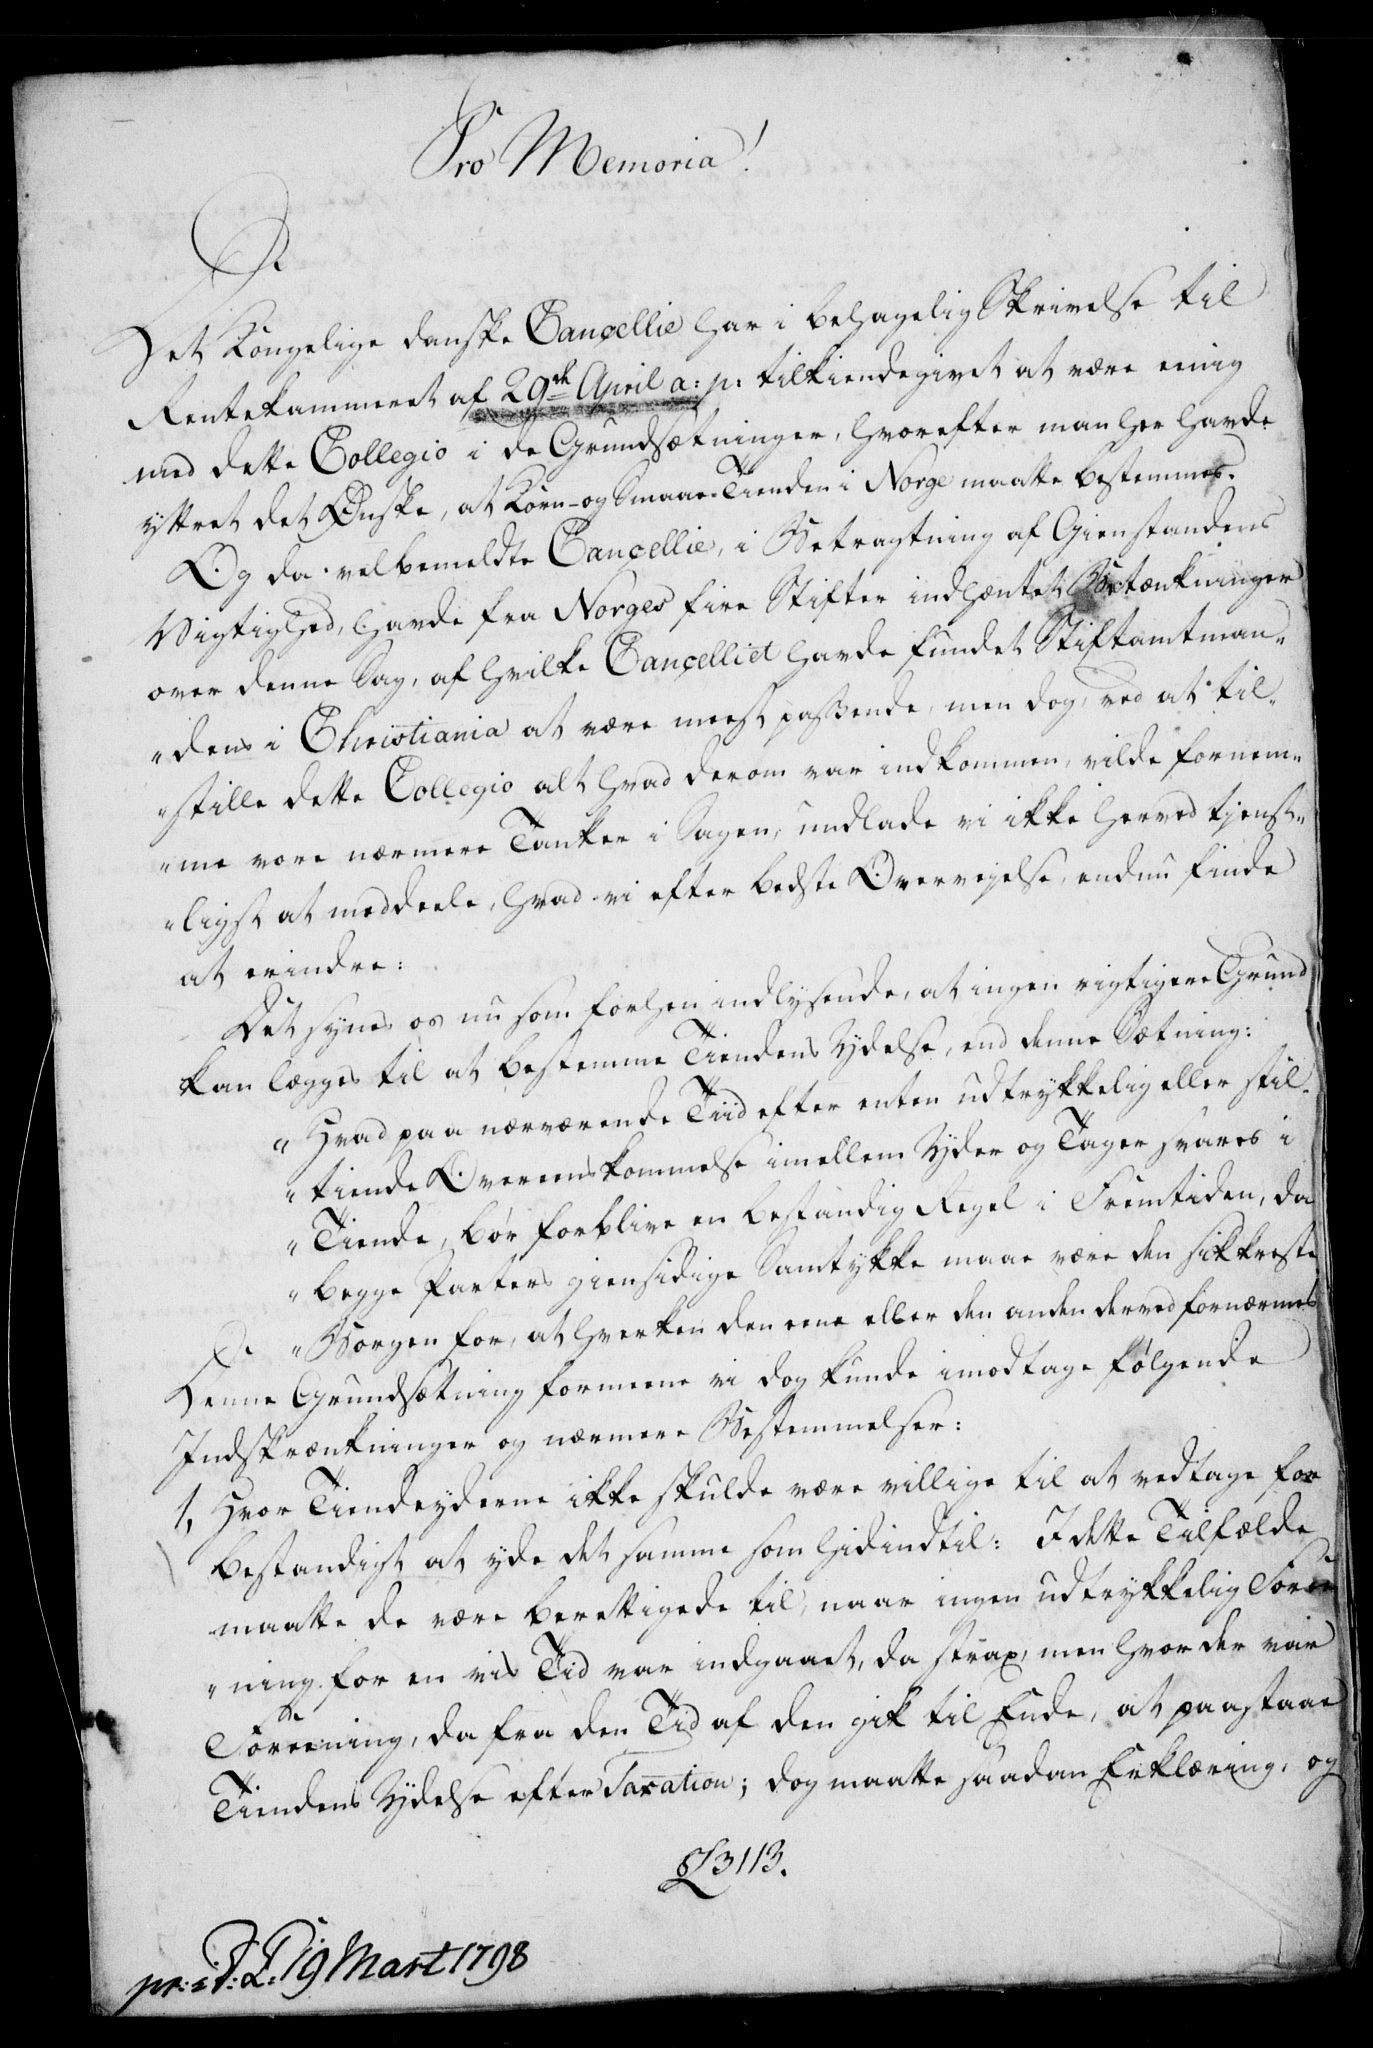 Pro Memoria!
Det Kongelige danske Cancellie har i behagelig Skrivelse til
Rentekammeret af 29de April a: p: tilkiendegivet at være enig
med dette Collegio i de Grundsætninger, hvorefter man her havde
yttret det Ønske, at Korn- og Smaae-Tienden i Norge maatte bestemmes.
Og da velbemeldte Cancellie, i Betragtning af Gienstandens
Vigtighed, havde fra Norges fire Stifter indhentet Betænkninger
over denne Sag, af hvilke Cancelliet havde fundet Stiftamtman„
„dens i Christiania at være meest passende, men dog, ved at til„
„stille dette Collegio alt hvad derom var indkommen, vilde fornem„
„me vore nærmere Tanker i Sagen, undlade vi ikke herved tjenst„
„ligst at meddeele, hvad vi efter bedste Overvejelse, endnu finde
at erindre:
Det synes os nu som forhen indlysende, at ingen rigtigere Grund
kan lægges til at bestemme Tiendens Ydelse, end denne Sætning:
„Hvad paa nærværende Tiid efter enten udtrykkelig eller stil„
„tiende Overeenskommelse imellem Yder og Tager svares i
„Tiende, bør forblive en bestandig Regel i Fremtiden, da
„begge Parters giensidige Samtykke maae være den sikkreste
„Borgen for, at hverken den eene eller den anden derved fornærmes
Denne Grundsætning formeene vi dog kunde imodtage følgende
Indskrænkninger og nærmere Bestemmelser:
1, Hvor Tiendeyderne ikke skulde være villige til at vedtage for
bestandigt at yde det samme som hidindtil: I dette Tilfælde
maatte de være berettigede til, naar ingen udtrykkelig Foree
„ning for en vis Tid var indgaaet, da strax, men hvor der var
Foreening, da fra den Tid af den gik til Ende, at paastaae
Tiendens Ydelse efter Taxation; dog maatte saadan Erklæring, og
L3113.
pr: i D: L: 19 Mart 1798